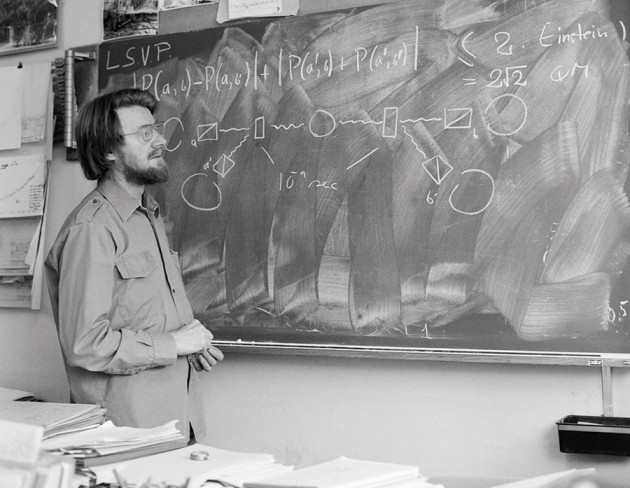 L.S.V.P.
|P(a,b)-P(a,b)|+|P(a',b)+P(a',b)| ≤ 2. Einstein)
= 2√2 QM.
a b
a'
10⁻⁹ sec
b'